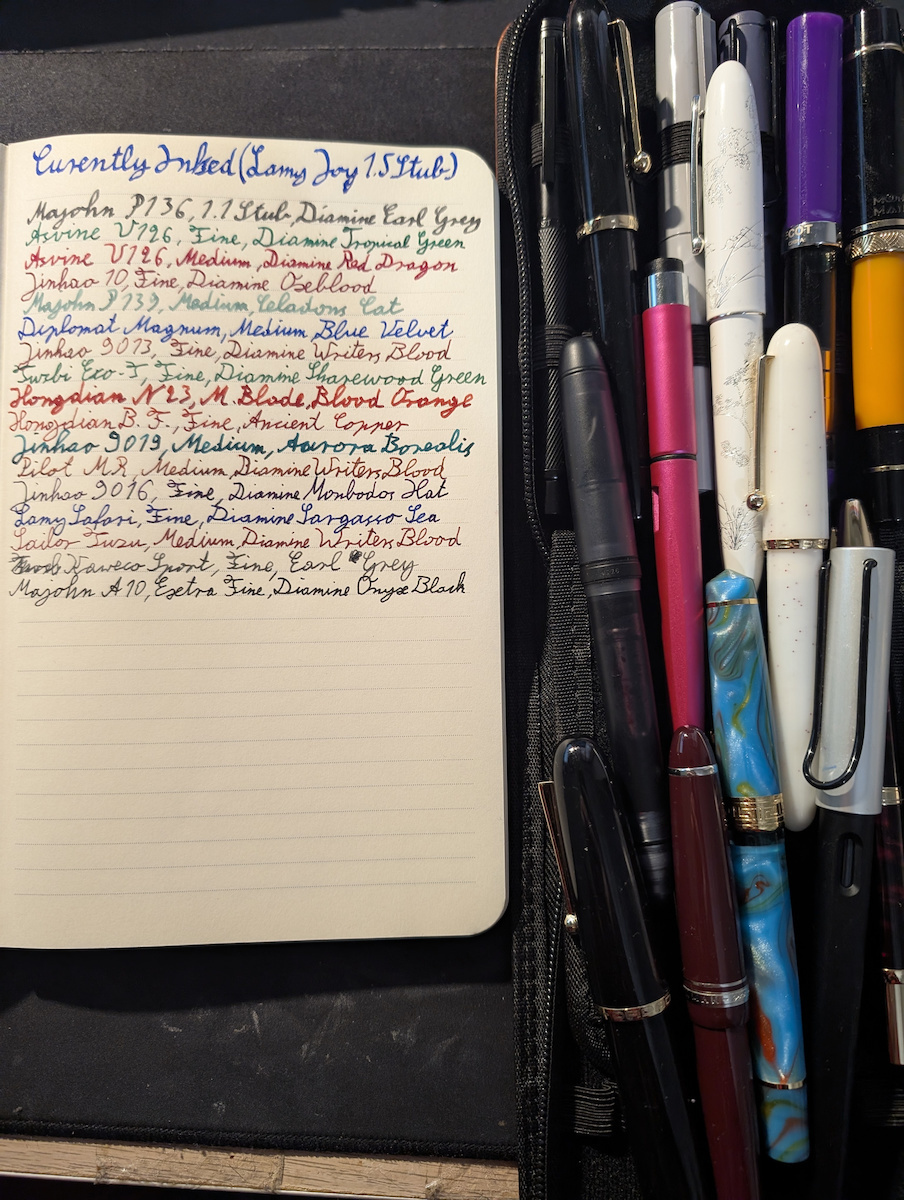 Curently Inked (Lamy Joy 1.5 Stub)
Majohn P136, 1.1 Stub, Diamine Earl Grey
Asvine V126, Fine, Diamine Tropical Green
Asvine V126, Medium, Diamine Red Dragon
Jinhao 10, Fine, Diamine Oxeblood
Majohn P139, Medium, Celadons Cat
Diplomat Magnum, Medium, Blue Velvet
Jinhao 9013, Fine, Diamine Writers Blood
Twsbi Eco-T, Fine, Diamine Sharewood Green
Hongdian N23, M. Blade, Blood Orange
Hongdian B. F., Fine, Ancient Copper
Jinhao 9019, Medium, Aurora Borealis
Pilot M.R, Medium, Diamine Writers Blood
Jinhao 9016, Fine, Diamine Monbodos Hat
Lamy Safari, Fine, Diamine Sargasso Sea
Sailor Tuzu, Medium, Diamine Writers Blood
Kaweco Sport, Fine, Earl Grey
Majohn A10, Extra Fine, Diamine Onyx Black